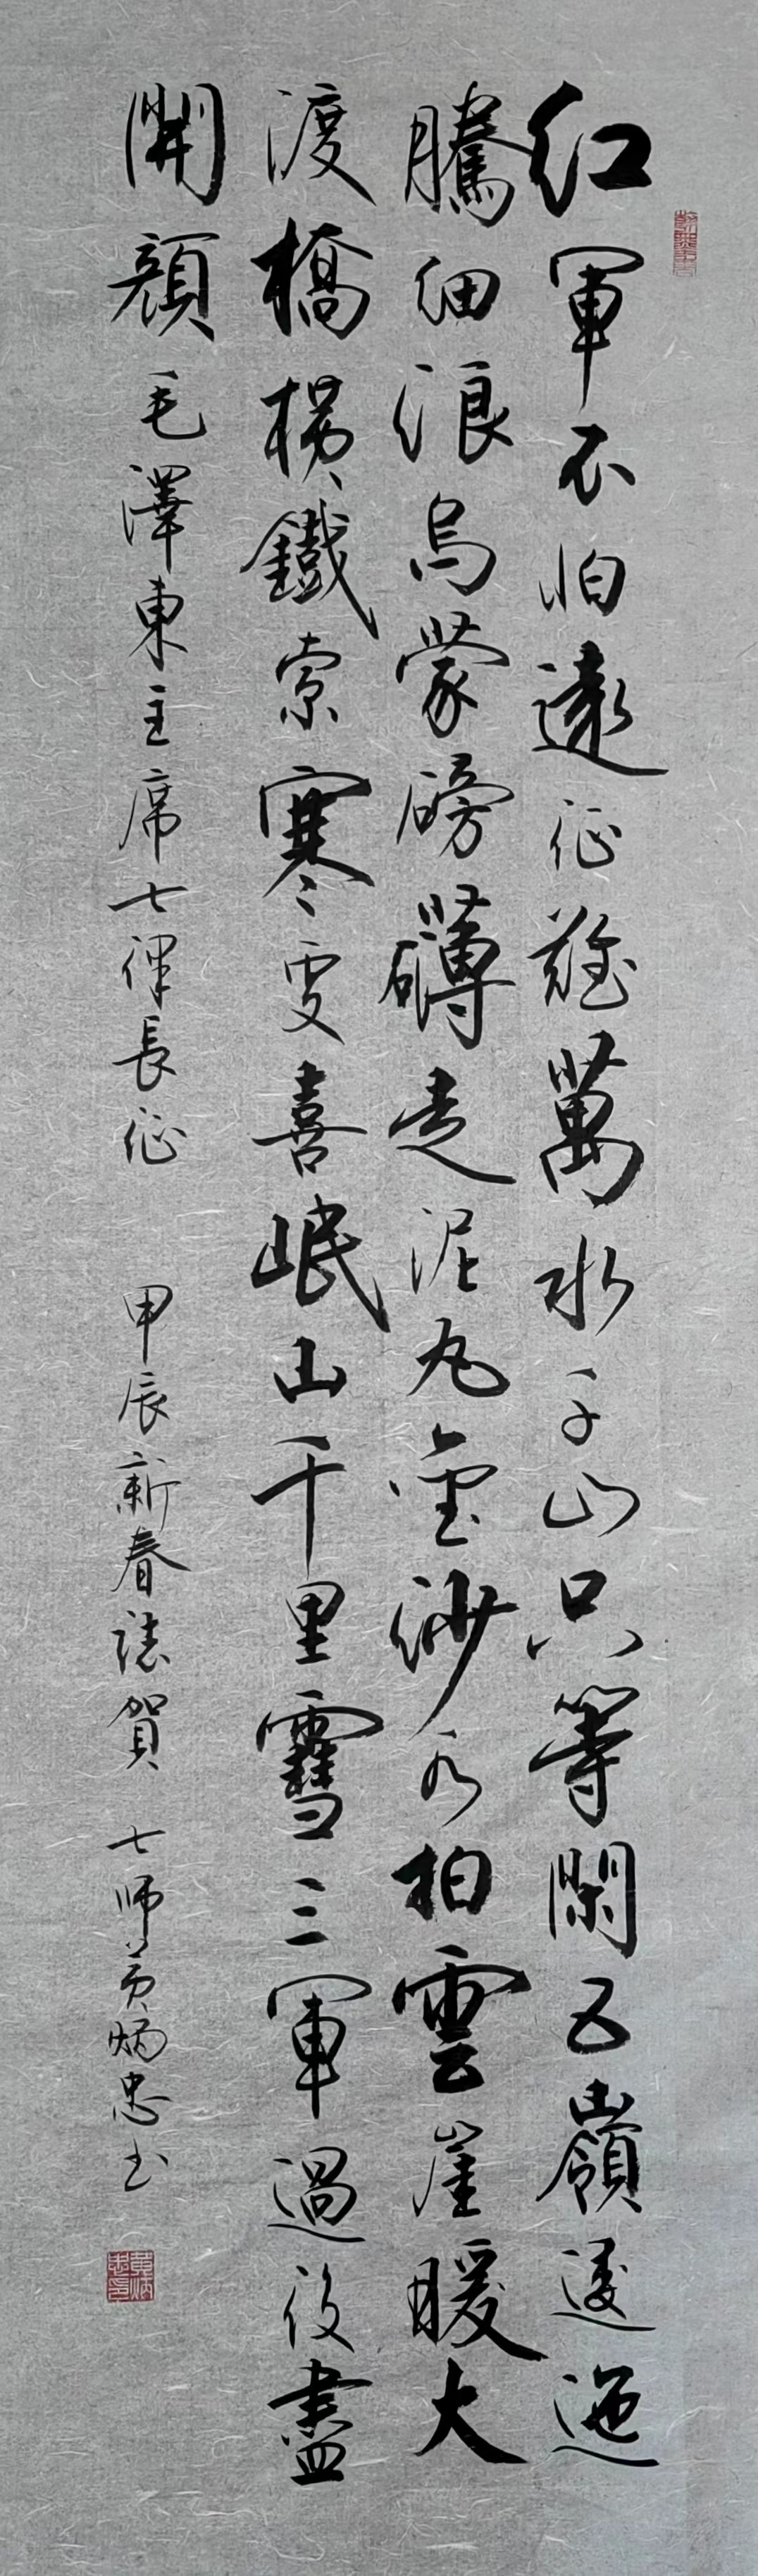 红軍不怕遠征難萬水千山只等閑五嶺逶迤
騰細浪烏蒙磅礴走泥丸金沙水拍雲崖暖大
渡橋橫鐵索寒更喜岷山千里雪三軍過後盡
開顏 毛澤東主席七律長征 甲辰新春誌賀 七师黃炳忠书
黄炳忠印